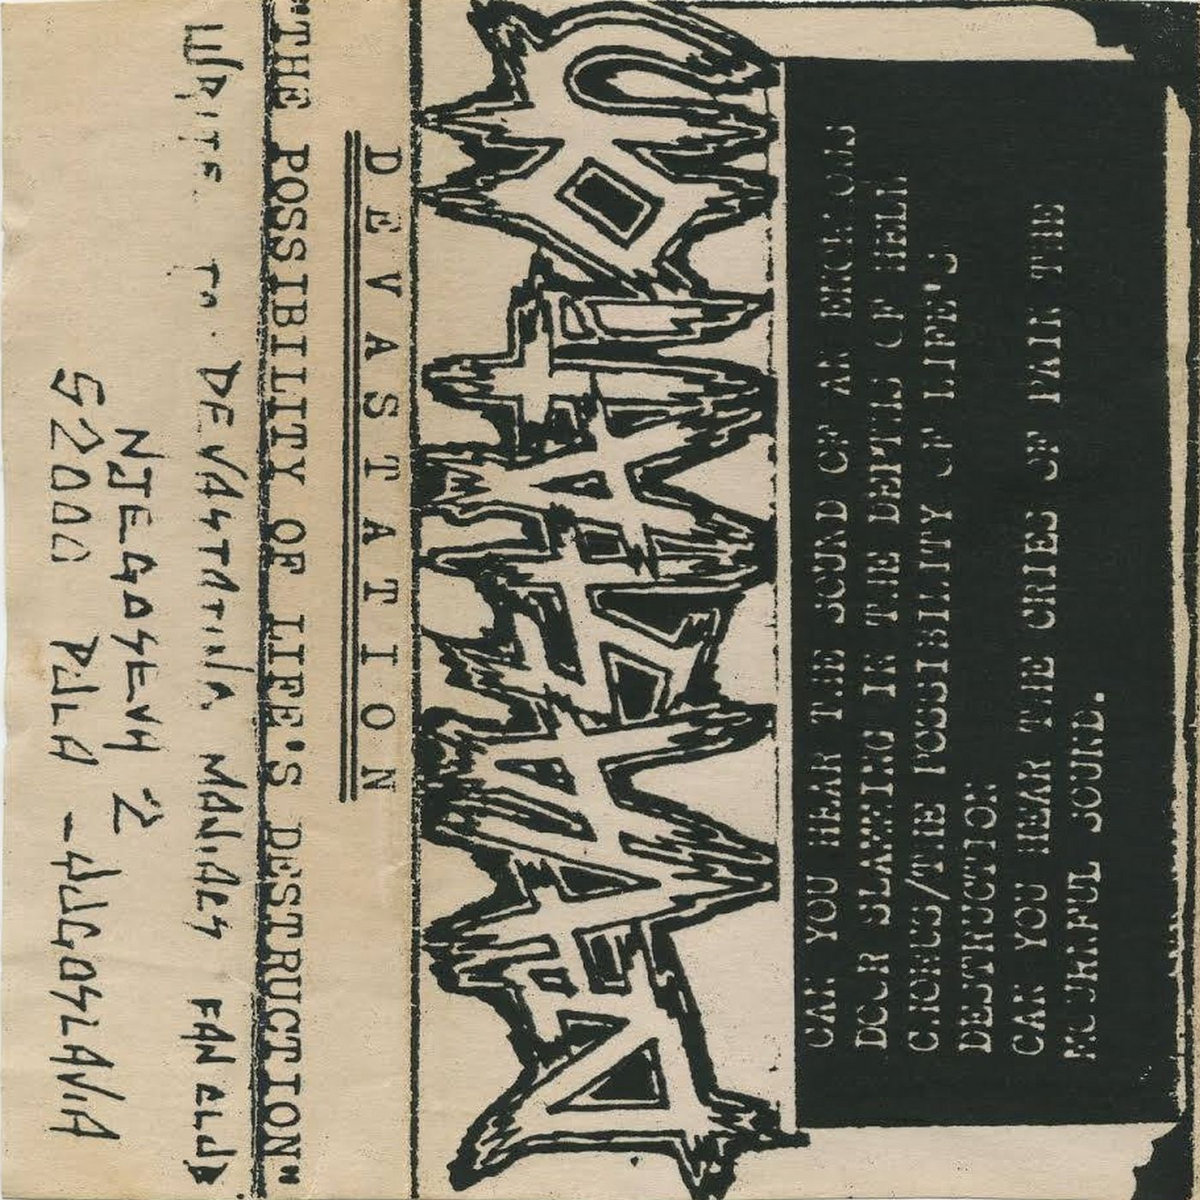 WRITE TO DEVASTATION MANIACS FAN CLUB
NJEGOSEVA 2
52000 PULA - JUGOSLAVIA
"THE POSSIBILITY OF LIFE'S DESTRUCTION"
DEVASTATION
DEVASTATION
CAN YOU HEAR THE SOUND OF AN ENORMOUS
DOOR SLAMMING IN THE DEPTHS OF HELL
CHORUS/THE POSSIBILITY OF LIFE'S
DESTRUCTION
CAN YOU HEAR THE CRIES OF PAIN THE
MOURNFUL SOUND.